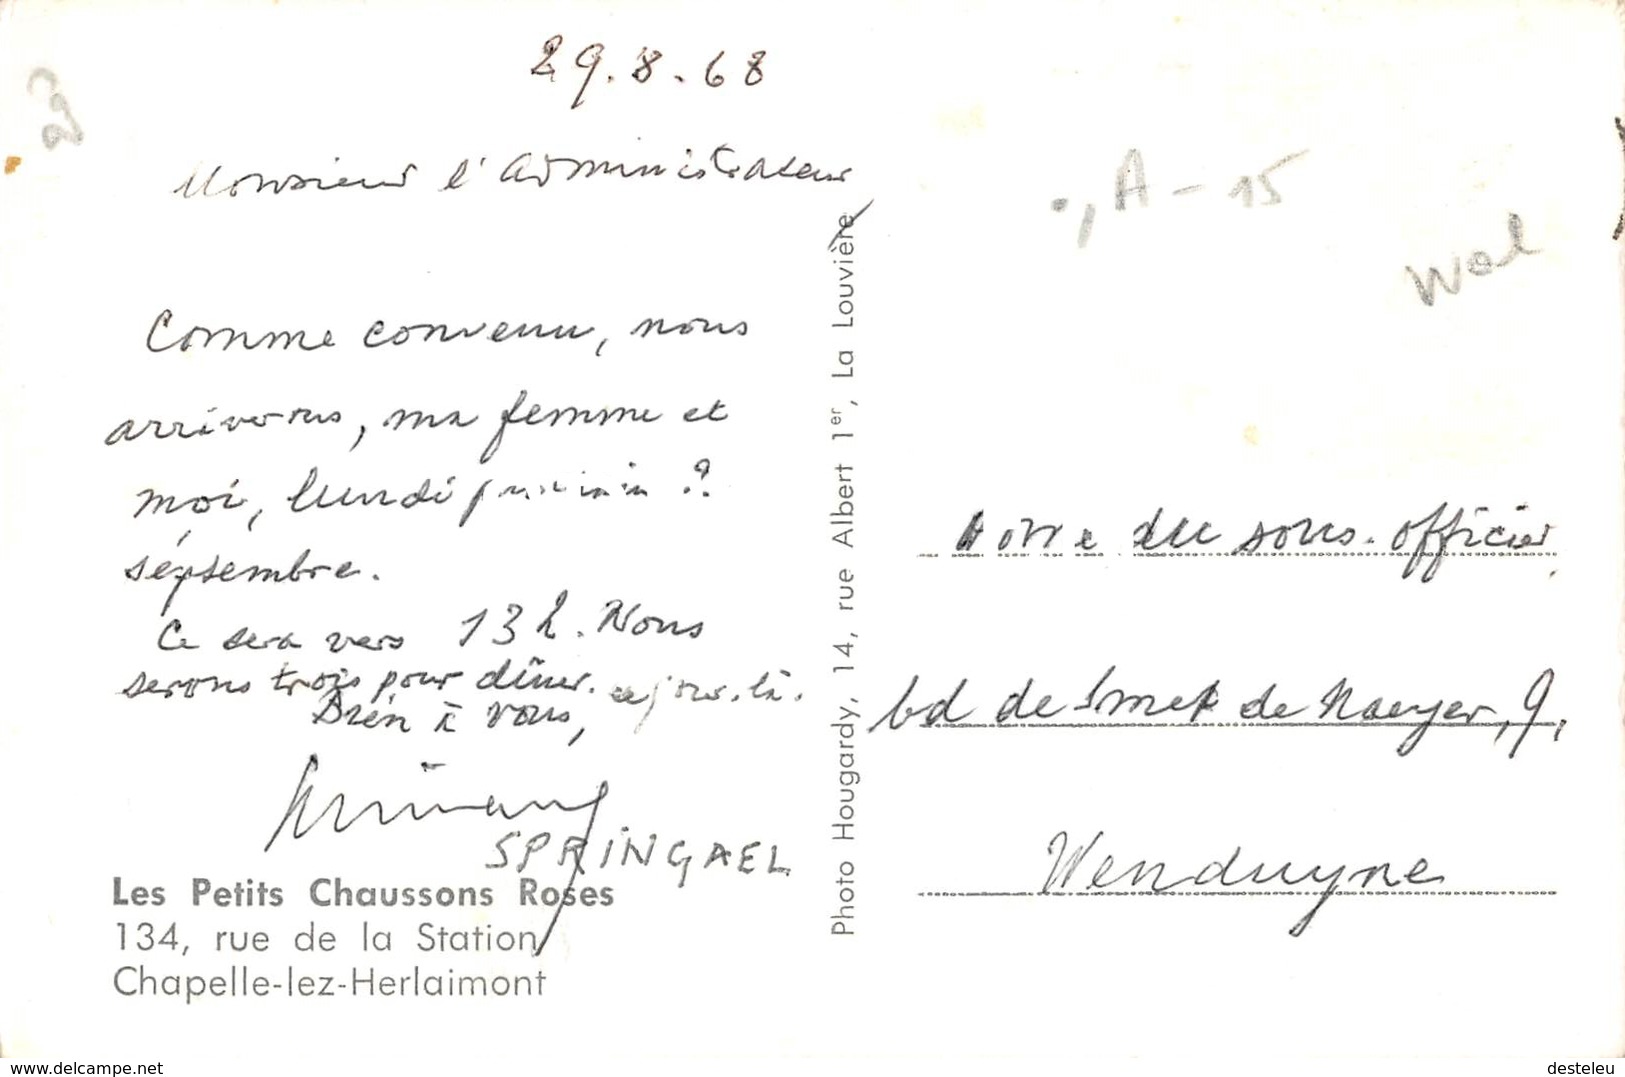 29.8.68
Monsieur l'administrateur
Comme convenu, nous
arriverons, ma femme et
moi, lundi prochain 2
septembre.
Ce sera vers 13 h. Nous
serons trois pour dîner. ce jour-là.
Bien à vous,
SPRINGAEL
Les Petits Chaussons Roses
134, rue de la Station
Chapelle-lez-Herlaimont
Photo Hougardy, 14, rue Albert 1er, La Louvière
., A - 15
Wal
du sous-officier
bd de Smet de Naeyer, 9,
Wenduyne
www.delcampe.net
desteleu